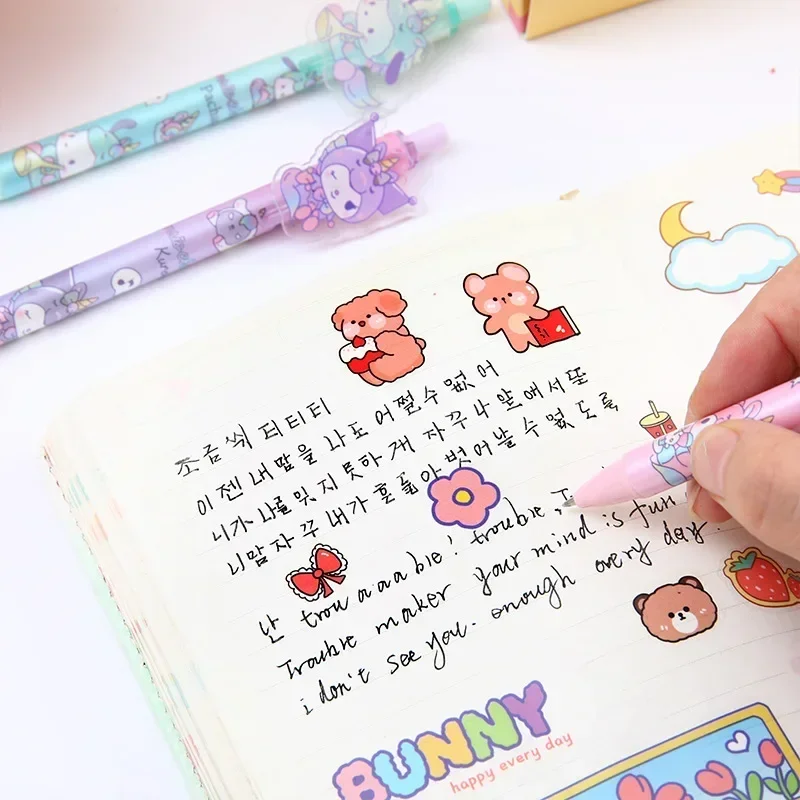 조금 씩 티 티 티
이 젠 내 맘을 나도 어쩔 수 없 어
니가 나를 잊 지 못하 게 자꾸 나 앞 에서 또
니맘 자 꾸 내가 흔들아 벗어날 수 없 도록
난 trou a.aa ble! trouble T
Trouble maker your mind is fun
i don't see you. enough every day.
BUNNY
happy every day